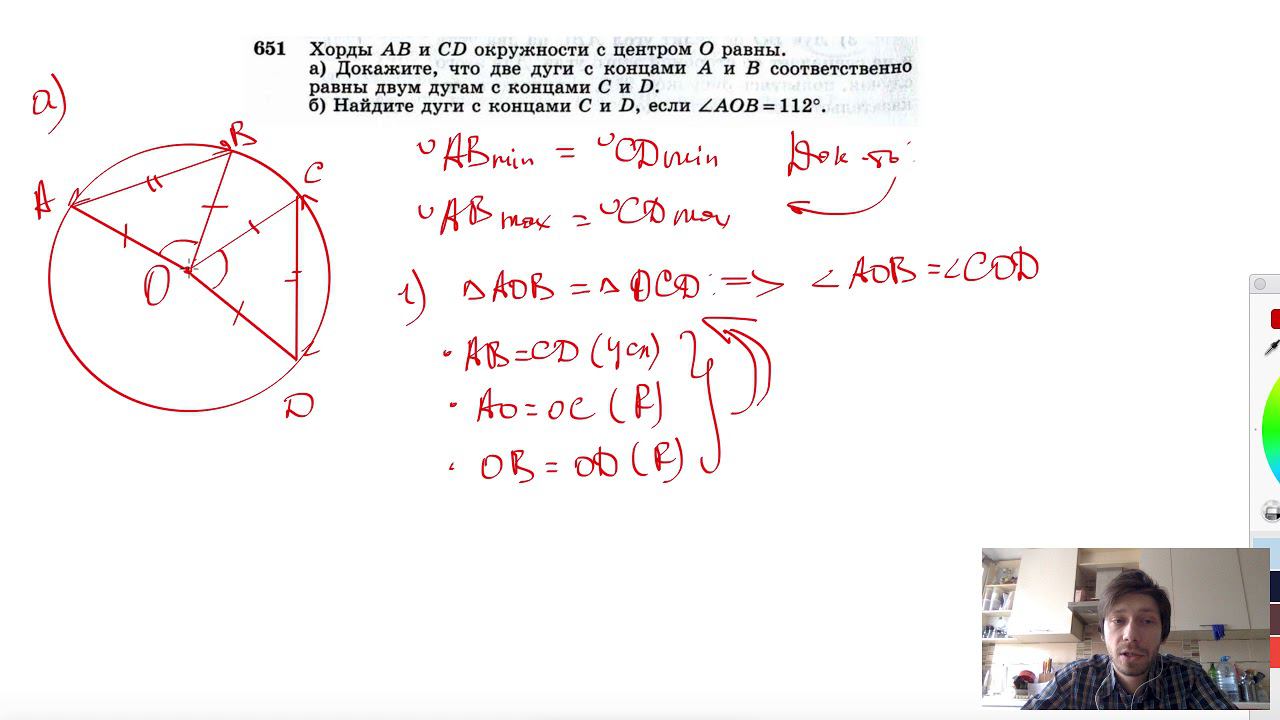 651 Хорды AB и CD окружности с центром O равны.
а) Докажите, что две дуги с концами A и B соответственно
равны двум дугам с концами C и D.
б) Найдите дуги с концами C и D, если ∠AOB = 112°.
а)
◡ABmin = ◡CDmin Док-ть:
◡ABmax = ◡CDmax
B
C
A
O
D
1) △AOB = △OCD: => ∠AOB = ∠COD
· AB = CD (усл)
· AO = OC (R)
· OB = OD (R)